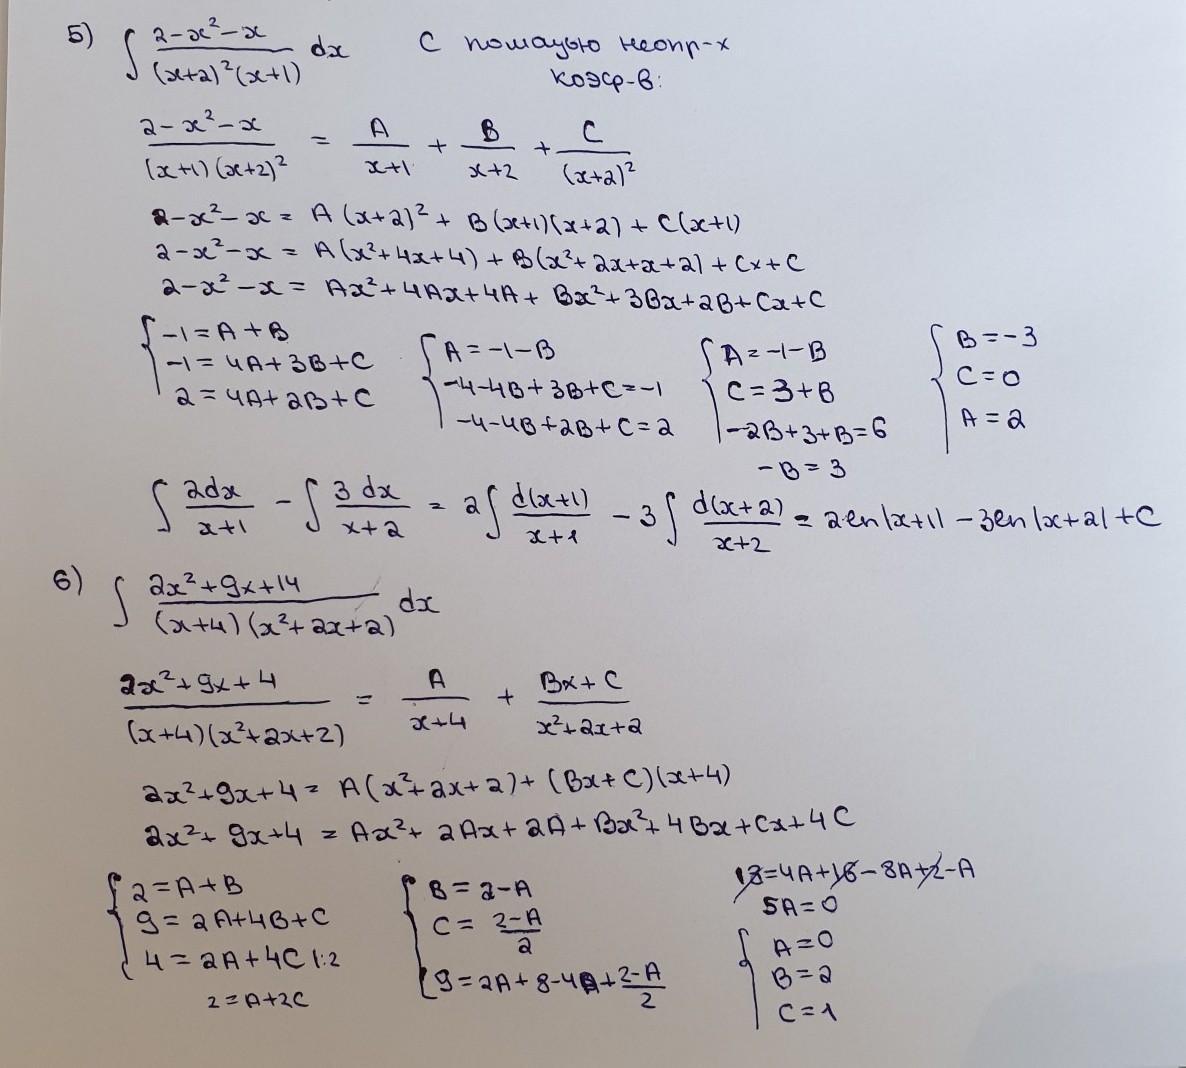 5) ∫ (2-x²-x)/((x+2)²(x+1)) dx С помощью неопр-х
коэф-в:
(2-x²-x)/((x+1)(x+2)²) = A/(x+1) + B/(x+2) + C/(x+2)²
2-x²-x = A(x+2)² + B(x+1)(x+2) + C(x+1)
2-x²-x = A(x²+4x+4) + B(x²+2x+x+2) + Cx+C
2-x²-x = Ax²+4Ax+4A+ Bx²+3Bx+2B+Cx+C
{ -1=A+B
-1=4A+3B+C
2=4A+2B+C
{ A=-1-B
-4-4B+3B+C=-1
-4-4B+2B+C=2
{ A=-1-B
C=3+B
-2B+3+B=6
-B=3
{ B=-3
C=0
A=2
∫ 2dx/(x+1) - ∫ 3dx/(x+2) = 2∫ d(x+1)/(x+1) - 3∫ d(x+2)/(x+2) = 2ln|x+1| - 3ln|x+2| + C
6) ∫ (2x²+9x+14)/((x+4)(x²+2x+2)) dx
(2x²+9x+4)/((x+4)(x²+2x+2)) = A/(x+4) + (Bx+C)/(x²+2x+2)
2x²+9x+4 = A(x²+2x+2)+(Bx+C)(x+4)
2x²+9x+4 = Ax²+2Ax+2A+Bx²+4Bx+Cx+4C
{ 2=A+B
9=2A+4B+C
4=2A+4C |:2
2=A+2C
{ B=2-A
C=(2-A)/2
9=2A+8-4A+(2-A)/2
18=4A+16-8A+2-A
5A=0
{ A=0
B=2
C=1